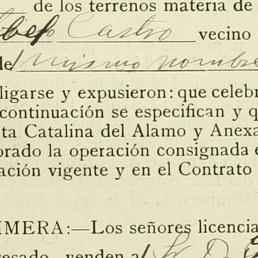 de los terrenos materia de
Castro vecino
de mismo nombre
ligarse y expusieron: que celebr
continuación se especifican y q
ta Catalina del Alamo y Anexa
orado la operación consignada e
ación vigente y en el Contrato
IMERA:—Los señores licencia
resado, venden a